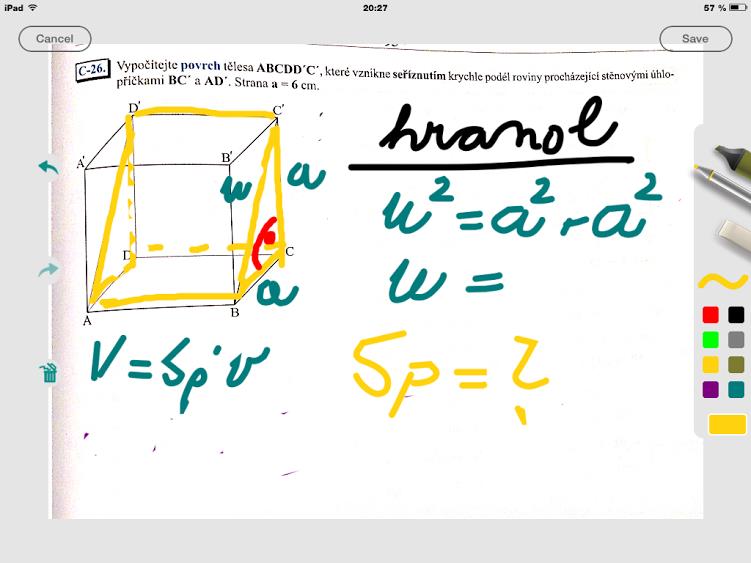 iPad 20:27 57 %
Cancel Save
C-26. Vypočítejte povrch tělesa ABCDD´C´, které vznikne seříznutím krychle podél roviny procházející stěnovými úhlo-
příčkami BC´ a AD´. Strana a = 6 cm.
D' C'
A' B'
u a
hranol
u² = a² + a²
u =
D C
a
A B
V = Sp · v
Sp = ?